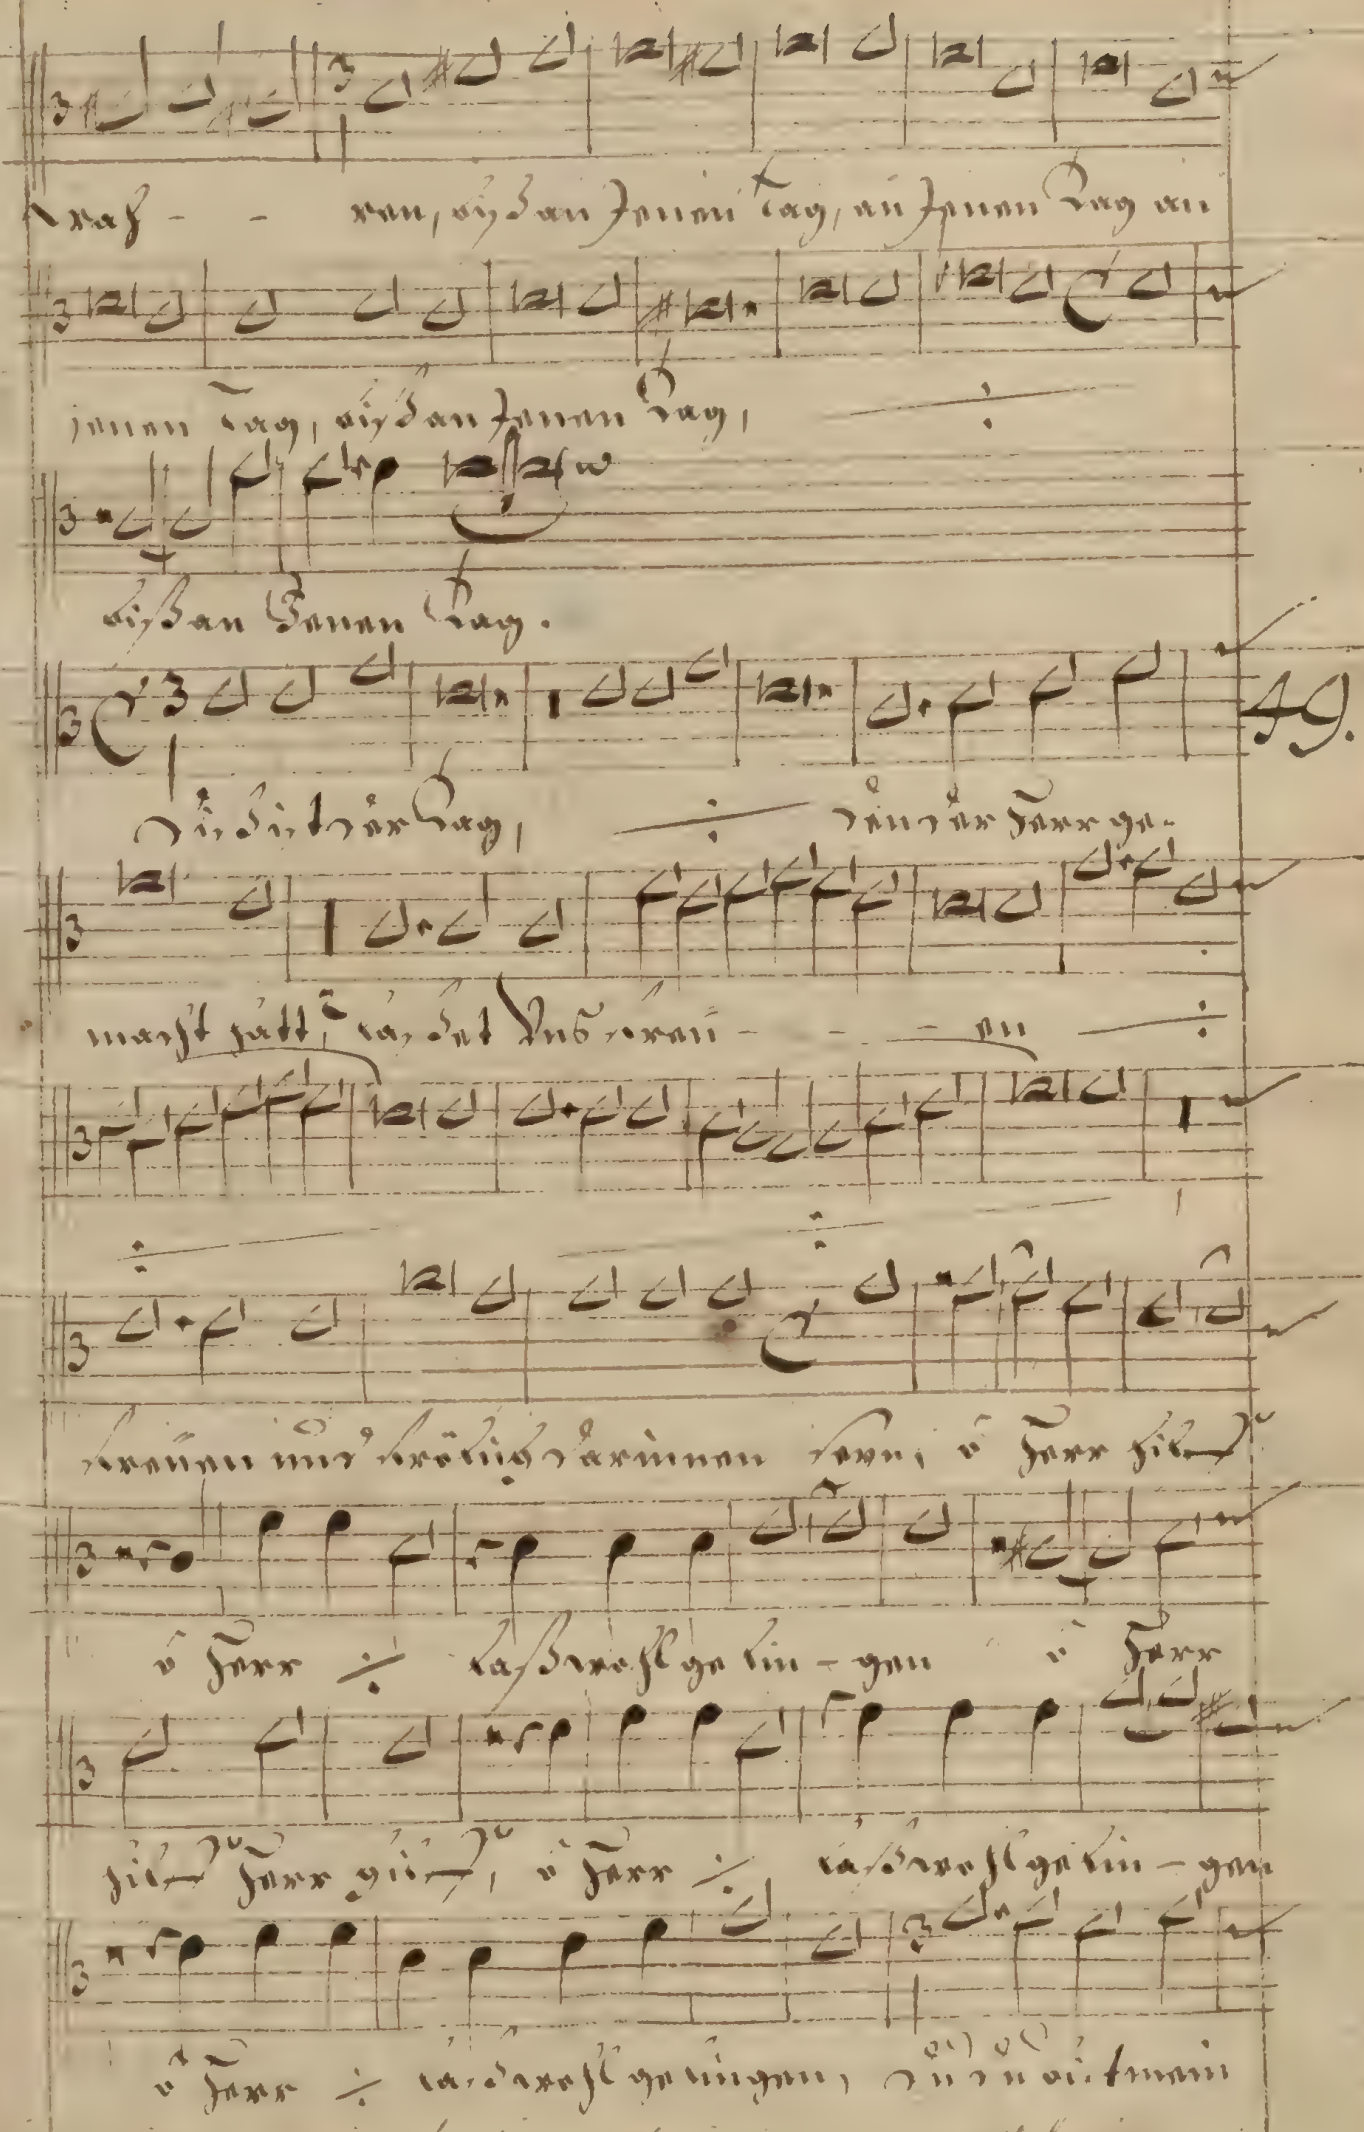 wah - - ren, biß an Jenen Tag, an Jenen Tag an
jenen Tag, biß an Jenen Tag, ÷
biß an Jenen Tag.
49.
Diß ist der Tag, ÷ den der Herr ge-
macht hatt, laßet Vns freü - - - en ÷
÷ ÷
freüen und frölich darinnen seyn, ô Herr hilff
ô Herr ÷ laß wohl gelin - gen ô Herr
hilff Herr hilff, ô Herr ÷ laß wohl gelin - gen
ô Herr ÷ laß wohl gelingen, du du bist mein